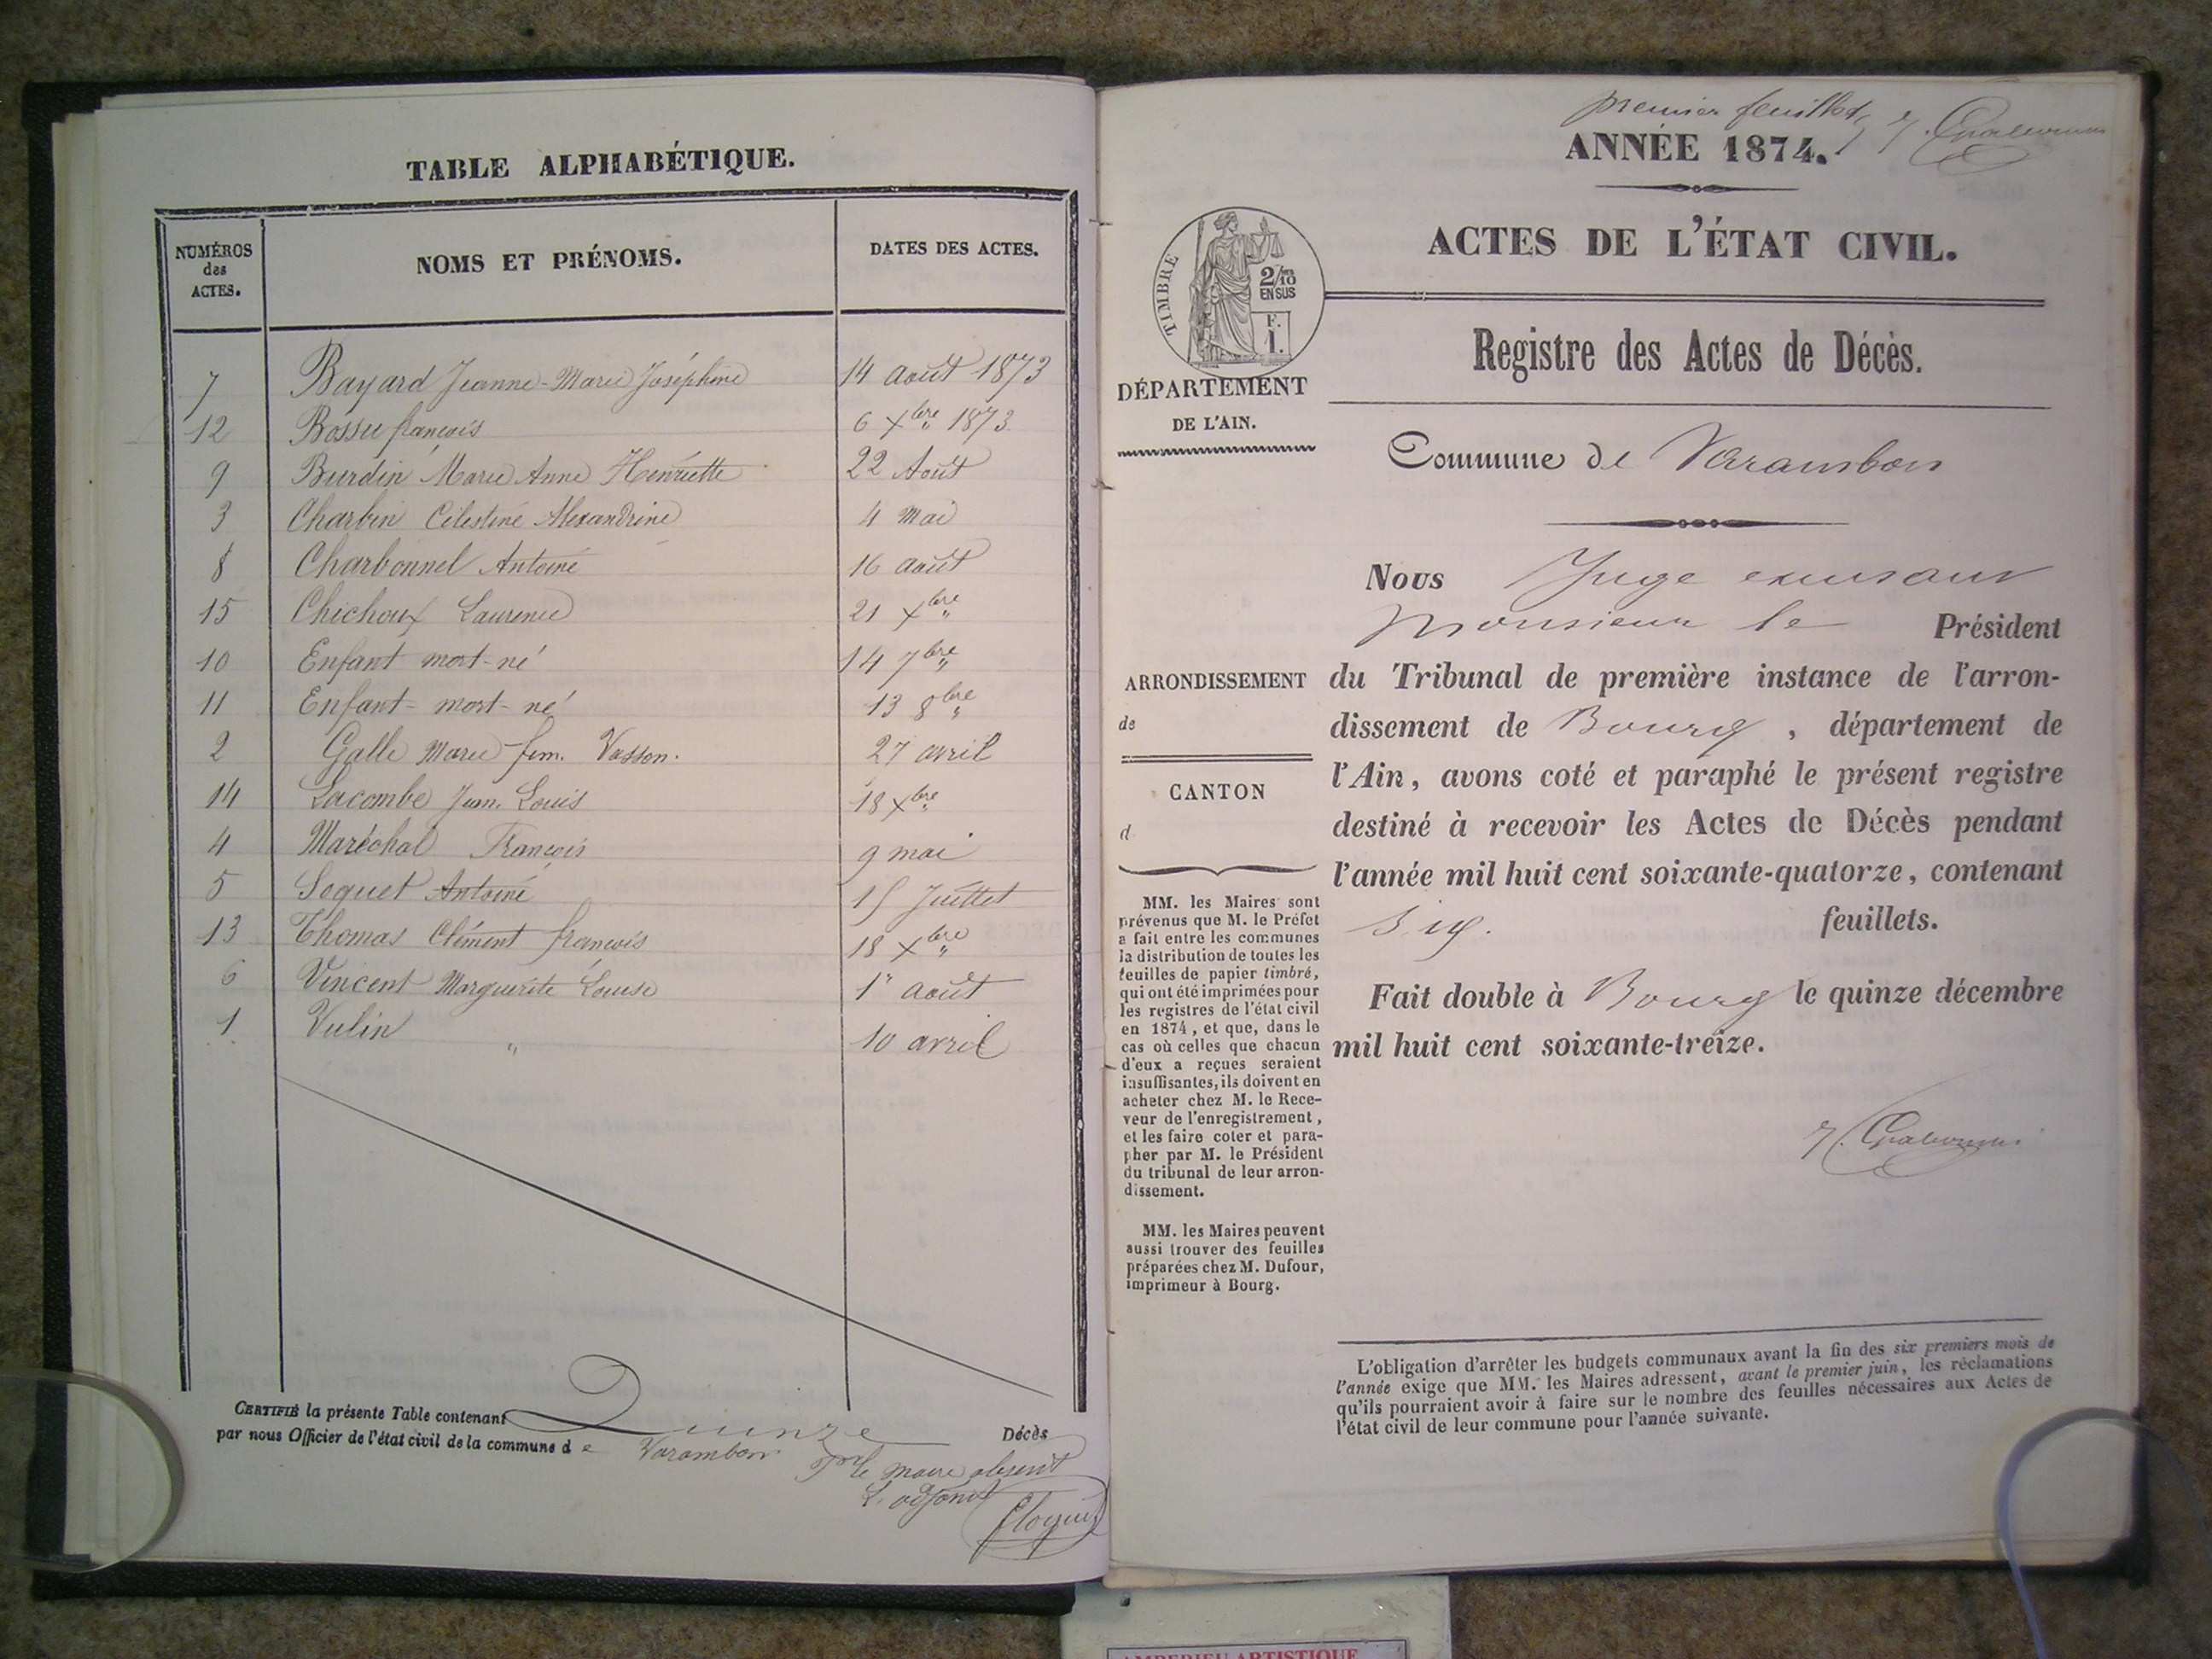 TABLE ALPHABÉTIQUE.
NUMÉROS
des
ACTES.
NOMS ET PRÉNOMS.
DATES DES ACTES.
7 Bayard Jeanne-Marie Joséphine 14 août 1873
12 Bossu françois 6 Xbre 1873
9 Burdin Marie Anne Henriette 22 Août
3 Charbin Célestine Alexandrine 4 mai
8 Charbonnel Antoine 16 août
15 Chichoux Laurence 21 Xbre "
10 Enfant mort-né 14 7bre "
11 Enfant-mort-né 13 8bre "
2 Galle Marie fem. Vasson. 27 avril
14 Lacombe Jean Louis 18 Xbre "
4 Maréchal François 9 mai
5 Soquet Antoine 15 Juillet
13 Thomas Clément françois 18 Xbre "
6 Vincent Marguerite Louise 1er août
1 Vulin " 10 avril
CERTIFIÉ la présente Table contenant Quinze Décès
par nous Officier de l'état civil de la commune de Varambon
Pr le maire absent
L. adjoint
premier feuillet
ANNÉE 1874.
ACTES DE L'ÉTAT CIVIL.
TIMBRE
2/10
EN SUS
F.
1.
Registre des Actes de Décès.
DÉPARTEMENT
DE L'AIN.
Commune de Varambon
Nous Juge
Monsieur le Président
du Tribunal de première instance de l'arron-
dissement de Bourg, département de
l'Ain, avons coté et paraphé le présent registre
destiné à recevoir les Actes de Décès pendant
l'année mil huit cent soixante-quatorze, contenant
six. feuillets.
Fait double à Bourg le quinze décembre
mil huit cent soixante-treize.
ARRONDISSEMENT
de
CANTON
d
MM. les Maires sont
prévenus que M. le Préfet
a fait entre les communes
la distribution de toutes les
feuilles de papier timbré,
qui ont été imprimées pour
les registres de l'état civil
en 1874, et que, dans le
cas où celles que chacun
d'eux a reçues seraient
insuffisantes, ils doivent en
acheter chez M. le Rece-
veur de l'enregistrement,
et les faire coter et para-
pher par M. le Président
du tribunal de leur arron-
dissement.
MM. les Maires peuvent
aussi trouver des feuilles
préparées chez M. Dufour,
imprimeur à Bourg.
L'obligation d'arrêter les budgets communaux avant la fin des six premiers mois de
l'année exige que MM. les Maires adressent, avant le premier juin, les réclamations
qu'ils pourraient avoir à faire sur le nombre des feuilles nécessaires aux Actes de
l'état civil de leur commune pour l'année suivante.
AMBERIEU ARTISTIQUE